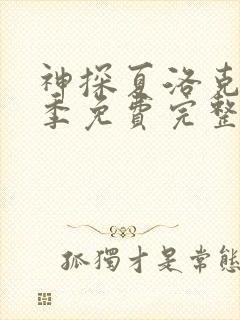 神探夏洛克
季免費完整
孤獨才是常態